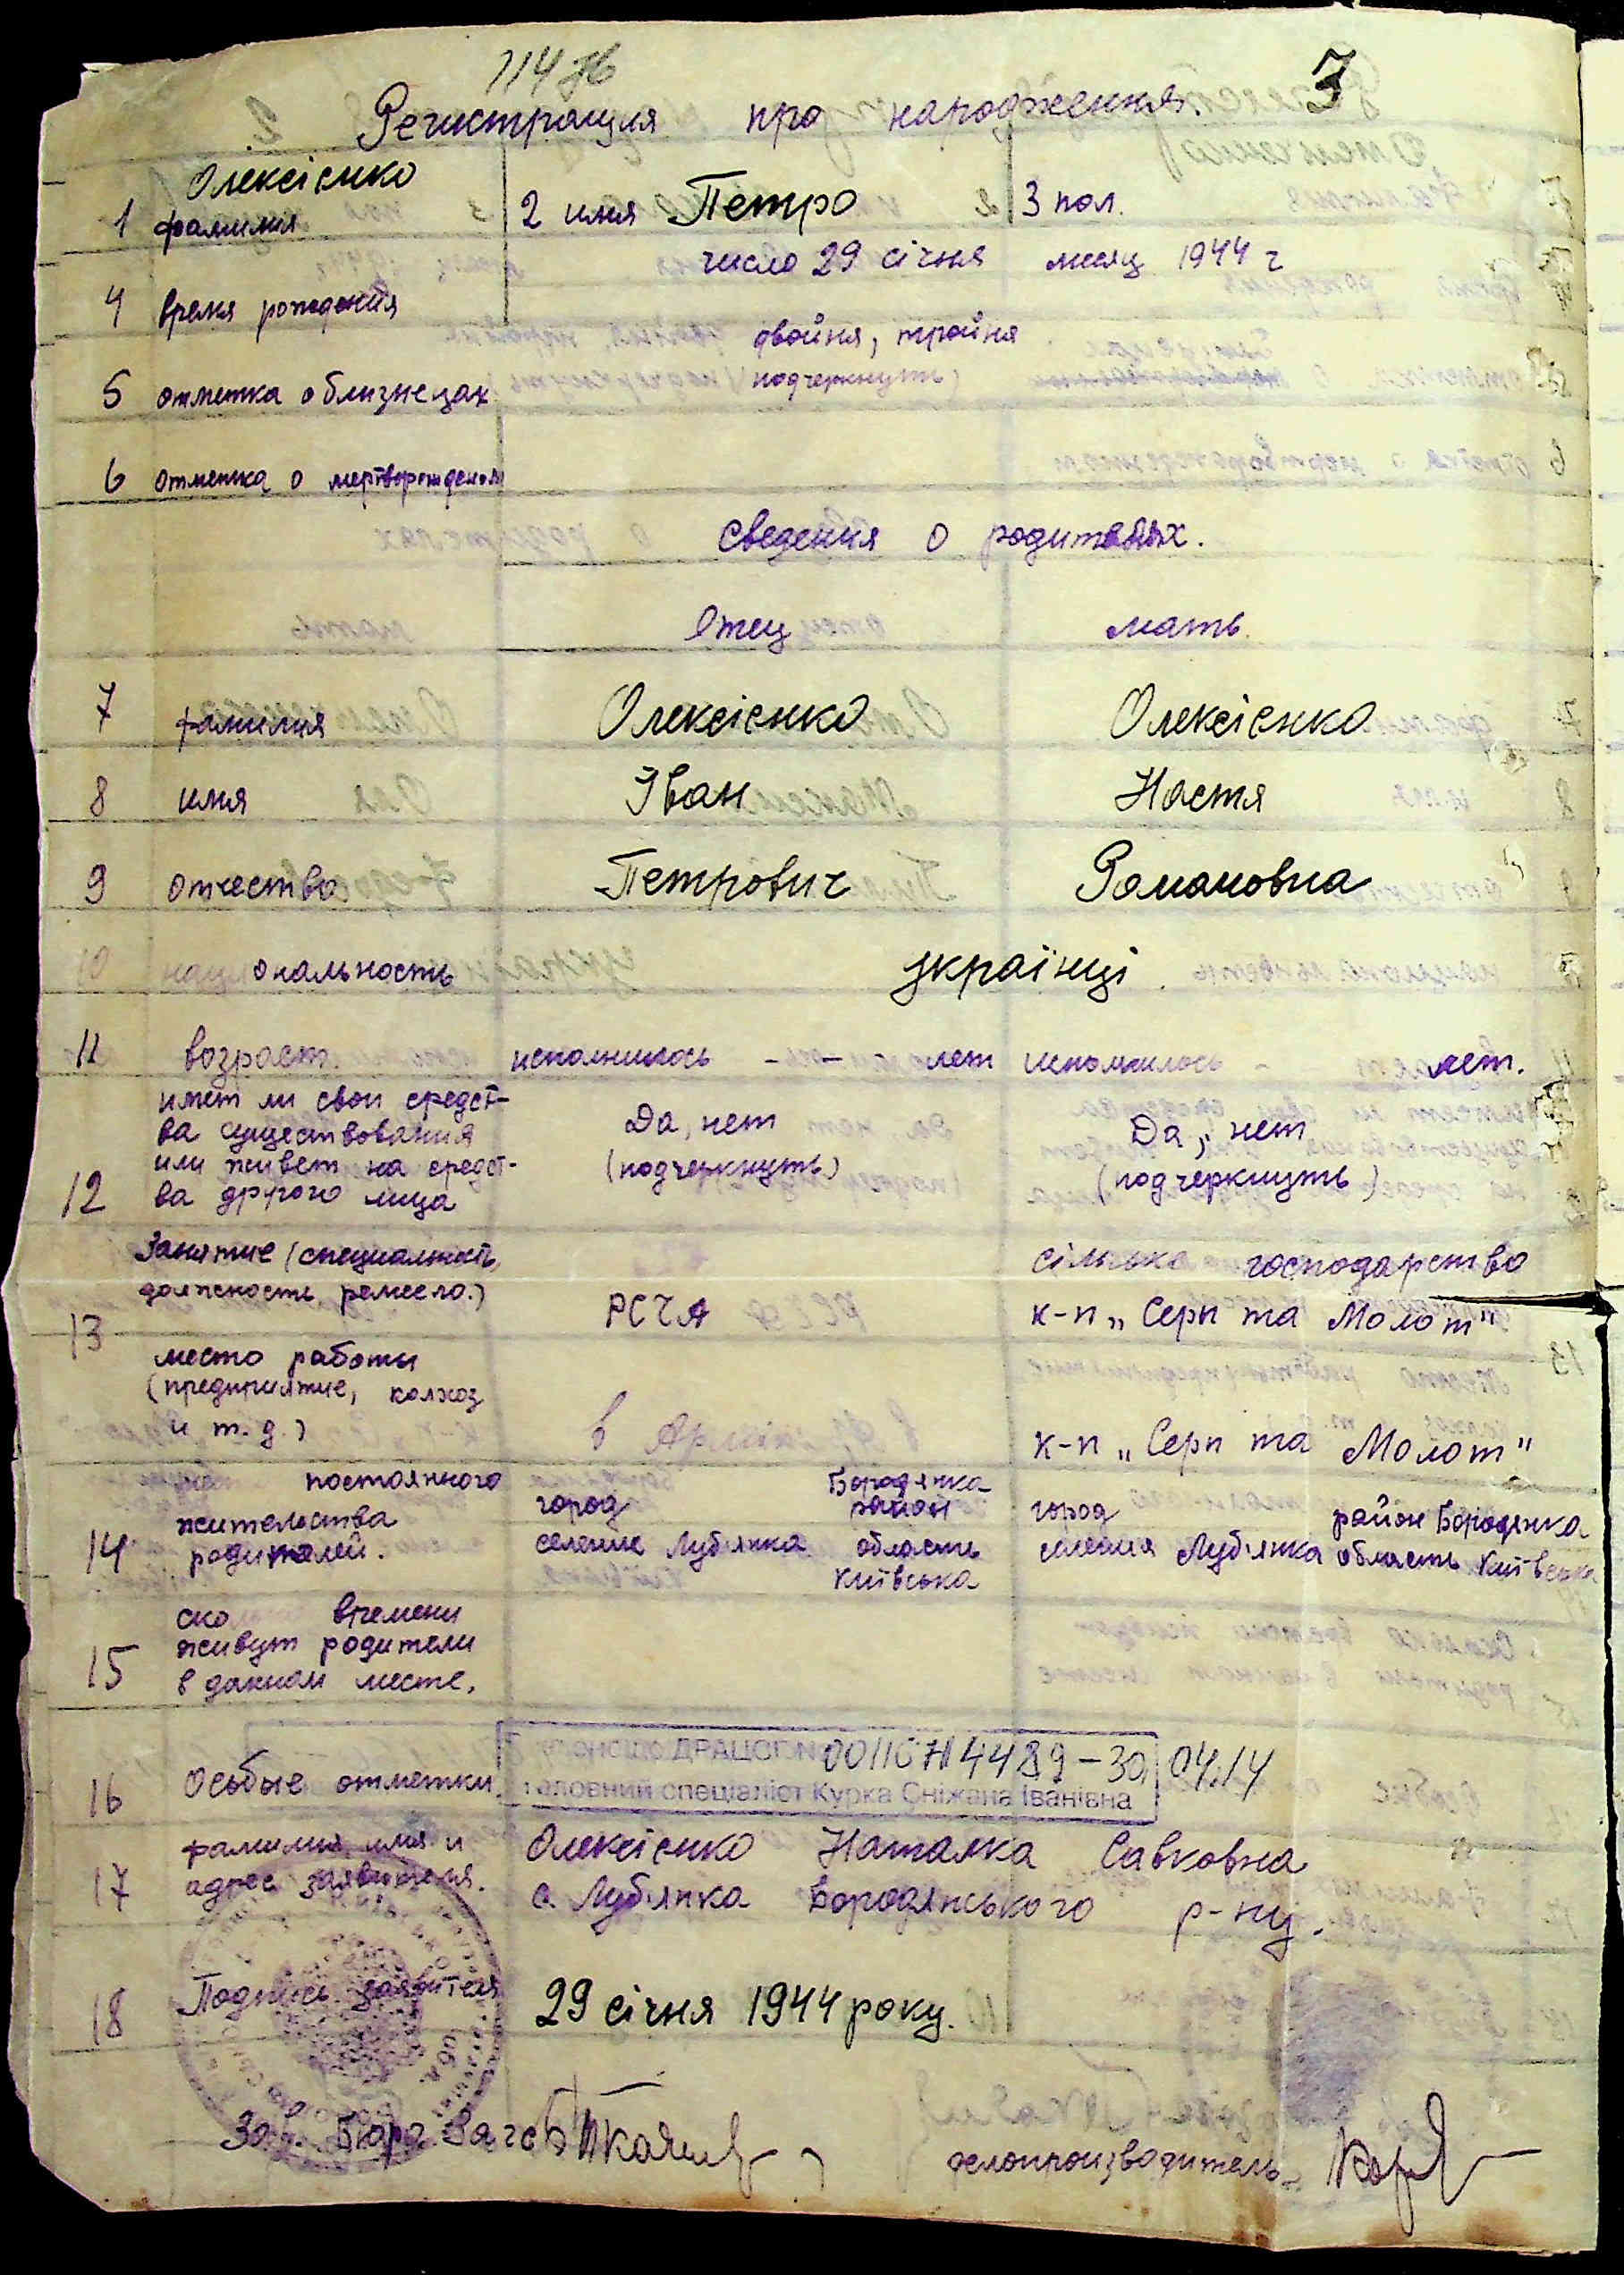 114
3
Регистрация про народження.
Олексієнко
1 фамилия 2 имя Петро 3 пол.
число 29 січня месяц 1944 г
4 время рождения
двойня, тройня
5 отметка о близнецах (подчеркнуть)
6 отметка о мертворожденом
Сведения о родителях.
Отец мать
7 фамилия Олексієнко Олексієнко
8 имя Іван Настя
9 отчество Петрович Романовна
10 национальность українці
11 возраст. исполнилось - - лет исполнилось лет.
имет ли свои средст-
ва существования Да, нет Да, нет
или живет на средст- (подчеркнуть) (подчеркнуть)
12 ва другого лица
Занятие (специальность сільське господарство
должность ремесло.) РСЧА к-п „Серп та Молот"
13
место работы
(предприятие, колхоз
и т. д.) в Армії к-п „Серп та Молот"
постоянного Бородянка
жительства город район город район Бородянка
14 родителей. селение Луб'янка область селения Луб'янка область Київська
Київська
времени
живут родители
15 в данном месте.
ДРАЦСГ № 00110714489-30.04.14
16 Особые отметки. головний спеціаліст Курка Сніжана Іванівна
фамилия имя и Олексієнко Наталка Савковна
17 адрес заявителя. с. Луб'янка Бородянського р-ну.
18 Подпись заявителя 29 січня 1944 року.
Зав. Бюро Загсб
делопроизводитель